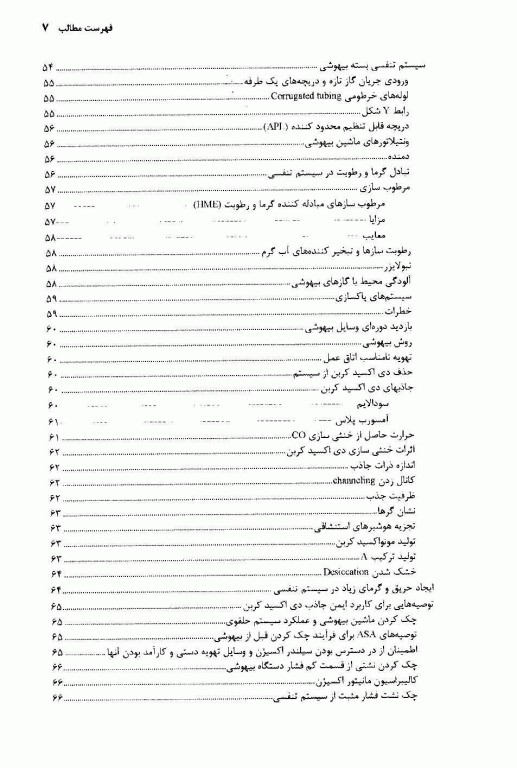 فهرست مطالب ۷
سیستم تنفسی بسته بیهوشی ۵۴
ورودی جریان گاز تازه و دریچه‌های یک طرفه ۵۵
لوله‌های خرطومی Corrugated tubing ۵۵
رابط Y شکل ۵۵
دریچه قابل تنظیم محدود کننده (APL) ۵۶
ونتیلاتورهای ماشین بیهوشی ۵۶
دمنده ۵۶
تبادل گرما و رطوبت در سیستم تنفسی ۵۶
مرطوب سازی ۵۷
مرطوب سازهای مبادله کننده گرما و رطوبت (HME) ۵۷
مزایا ۵۷
معایب ۵۸
رطوبت سازها و تبخیر کننده‌های آب گرم ۵۸
نبولایزر ۵۸
آلودگی محیط با گازهای بیهوشی ۵۸
سیستم‌های پاکسازی ۵۹
خطرات ۵۹
بازدید دوره‌ای وسایل بیهوشی ۶۰
روش بیهوشی ۶۰
تهویه نامناسب اتاق عمل ۶۰
حذف دی اکسید کربن از سیستم ۶۰
جاذبهای دی اکسید کربن ۶۰
سودالایم ۶۰
آمسورب پلاس ۶۱
حرارت حاصل از خنثی سازی CO ۶۱
اثرات خنثی سازی دی اکسید کربن ۶۲
اندازه ذرات جاذب ۶۲
کانال زدن channeling ۶۲
ظرفیت جذب ۶۲
نشان گرها ۶۳
تجزیه هوشبرهای استنشاقی ۶۳
تولید مونواکسید کربن ۶۳
تولید ترکیب A ۶۳
خشک شدن Desiccation ۶۴
ایجاد حریق و گرمای زیاد در سیستم تنفسی ۶۴
توصیه‌هایی برای کاربرد ایمن جاذب دی اکسید کربن ۶۵
چک کردن ماشین بیهوشی و عملکرد سیستم حلقوی ۶۵
توصیه‌های ASA برای فرآیند چک کردن قبل از بیهوشی ۶۵
اطمینان از در دسترس بودن سیلندر اکسیژن و وسایل تهویه دستی و کارآمد بودن آنها ۶۵
چک کردن نشتی از قسمت کم فشار دستگاه بیهوشی ۶۶
کالیبراسیون مانیتور اکسیژن ۶۶
چک نشت فشار مثبت از سیستم تنفسی ۶۶